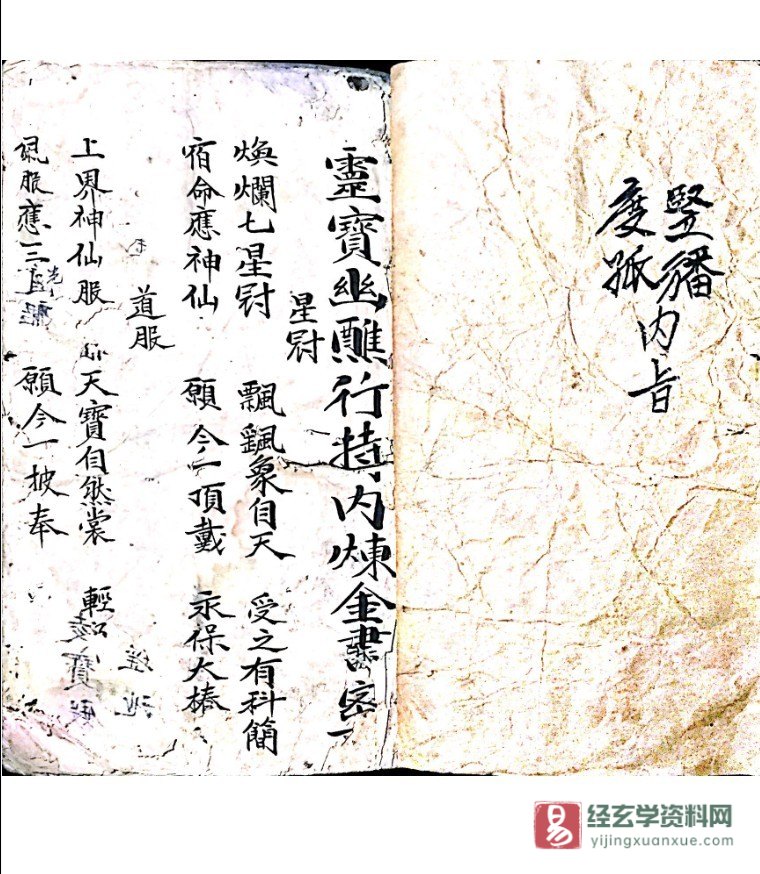 竪旙
度孤内旨
靈寳幽醮行持内煉金書宻
星冠
煥爛七星冠 飄飄象自天 受之有科簡
宿命應神仙 願今一頂戴 永保大椿
道服
上界神仙服 天寳自然裳 輕
服應三 願今一披奉
经玄学资料网
yijingxuanxue.com